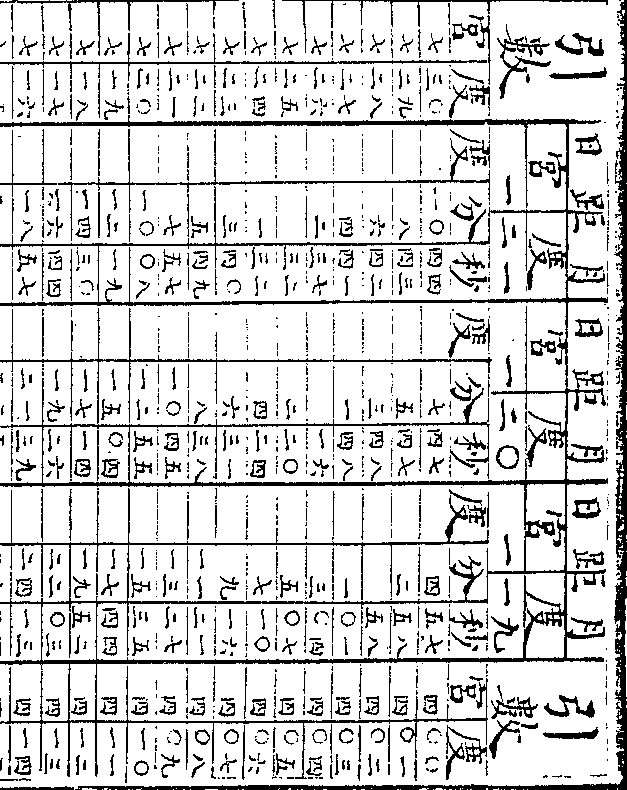 引數 日距月 日距月 日距月 引數
一宮二一度 一宮二〇度 一宮一九度
宮 度 度 分 秒 度 分 秒 度 分 秒 宮 度
七 三〇 一〇 四四 七 四七 四 五七 四 〇〇
七 二九 八 四三 五 四七 二 五八 四 〇一
七 二八 六 四二 三 四八 五八 四 〇二
七 二七 四 四一 一 四八 一 〇一 四 〇三
七 二六 二 三七 一六 三 〇四 四 〇四
七 二五 三二 二 二〇 五 〇七 四 〇五
七 二四 一 三三 四 二四 七 一〇 四 〇六
七 二三 三 四〇 六 三一 九 一六 四 〇七
七 二二 五 四九 八 三八 一一 二一 四 〇八
七 二一 七 五七 一〇 四五 一三 二七 四 〇九
七 二〇 一〇 〇八 一二 五五 一五 三五 四 一〇
七 一九 一二 一九 一五 〇四 一七 四四 四 一一
七 一八 一四 三〇 一七 一四 一九 五二 四 一二
七 一七 一六 四四 一九 二六 二二 〇三 四 一三
七 一六 一八 五七 二一 三九 二四 一三 四 一四